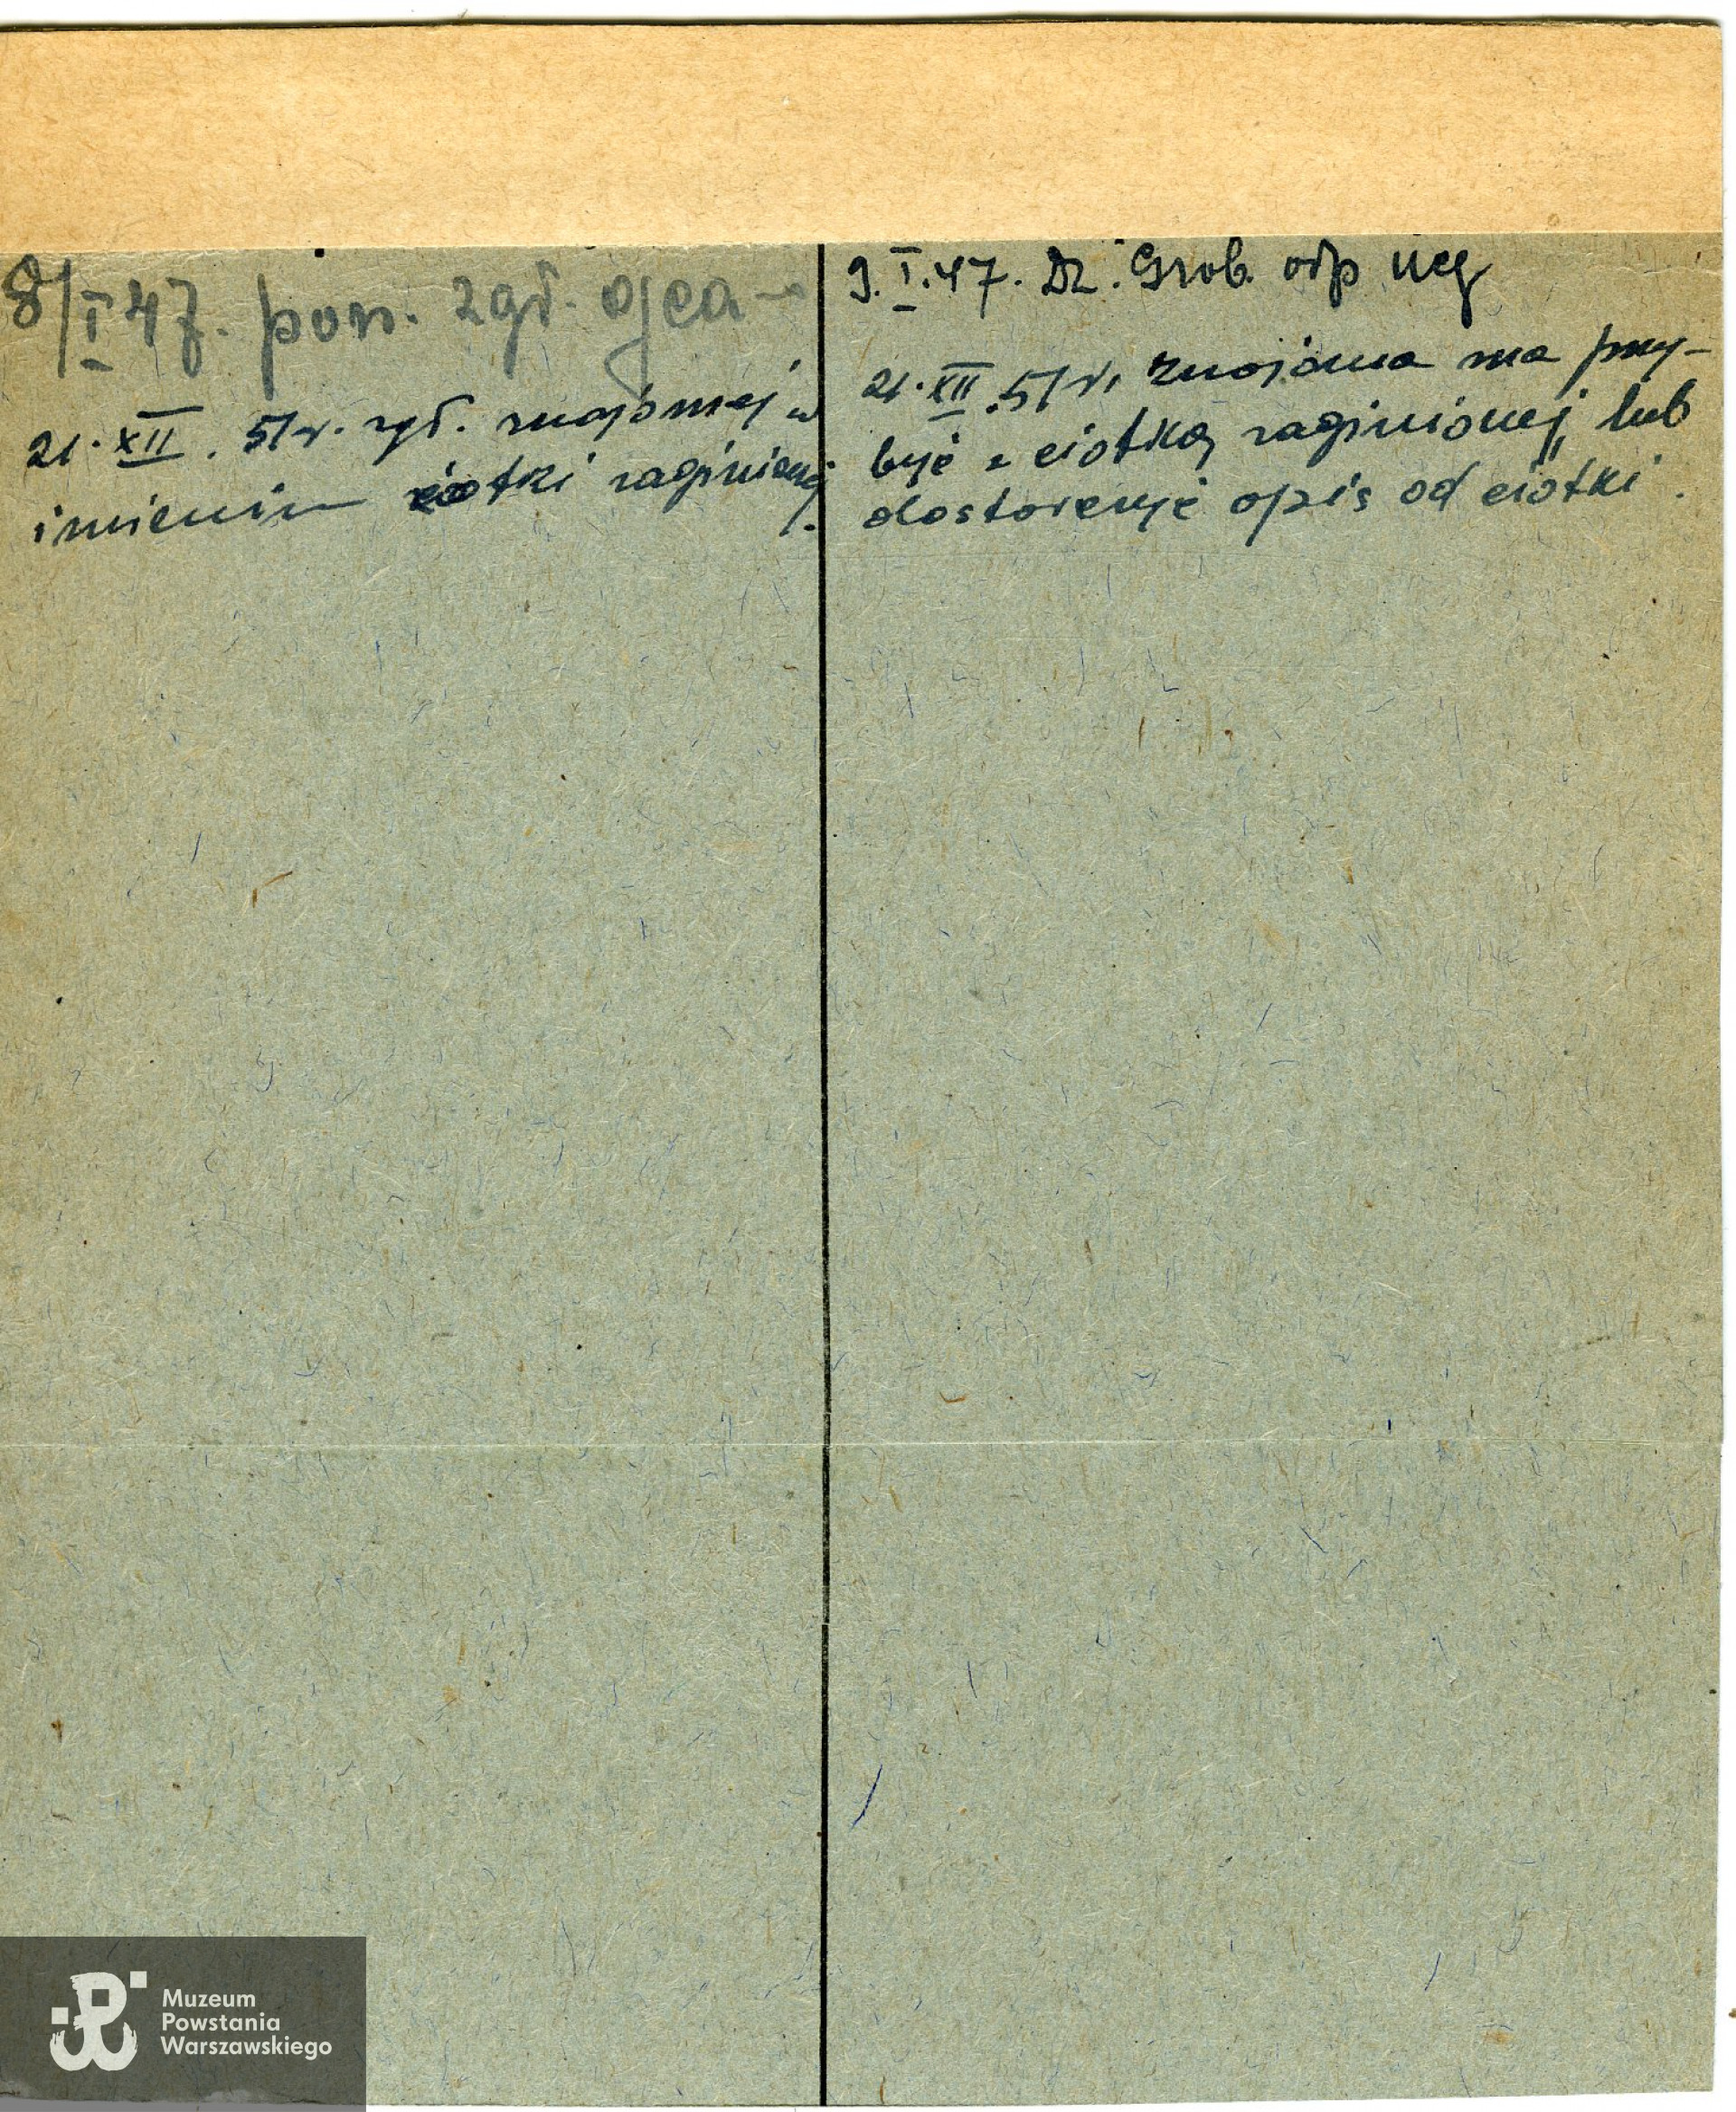 8/I 47. pon. zgł. ojca →
21. XII. 51 r. zgł. znajomej w
imieniu ciotki zaginionej.
9. I. 47. Dz. Grob. odp neg
21. XII. 51 r. znajoma ma przy-
być z ciotką zaginionej lub
dostarczyć opis od ciotki.
Muzeum
Powstania
Warszawskiego